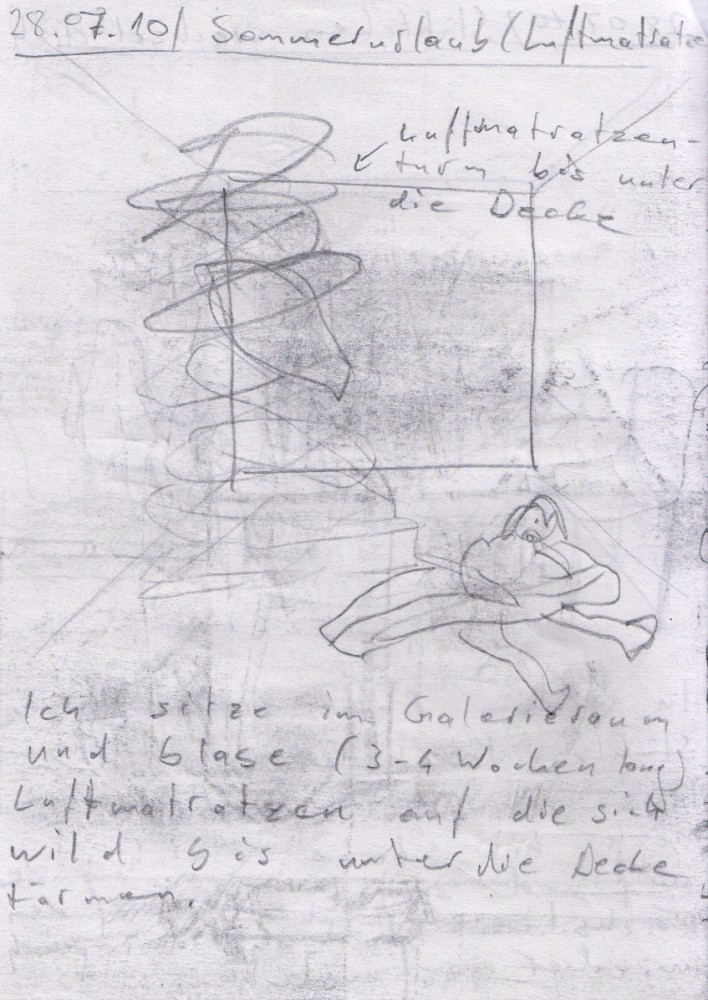 28.07.10/ Sommerurlaub (Luftmatratze
Luftmatratzen-
turm bis unter
die Decke
Ich sitze im Galerieraum
und blase (3-4 Wochen lang)
Luftmatratzen auf die sich
wild bis unter die Decke
türmen.